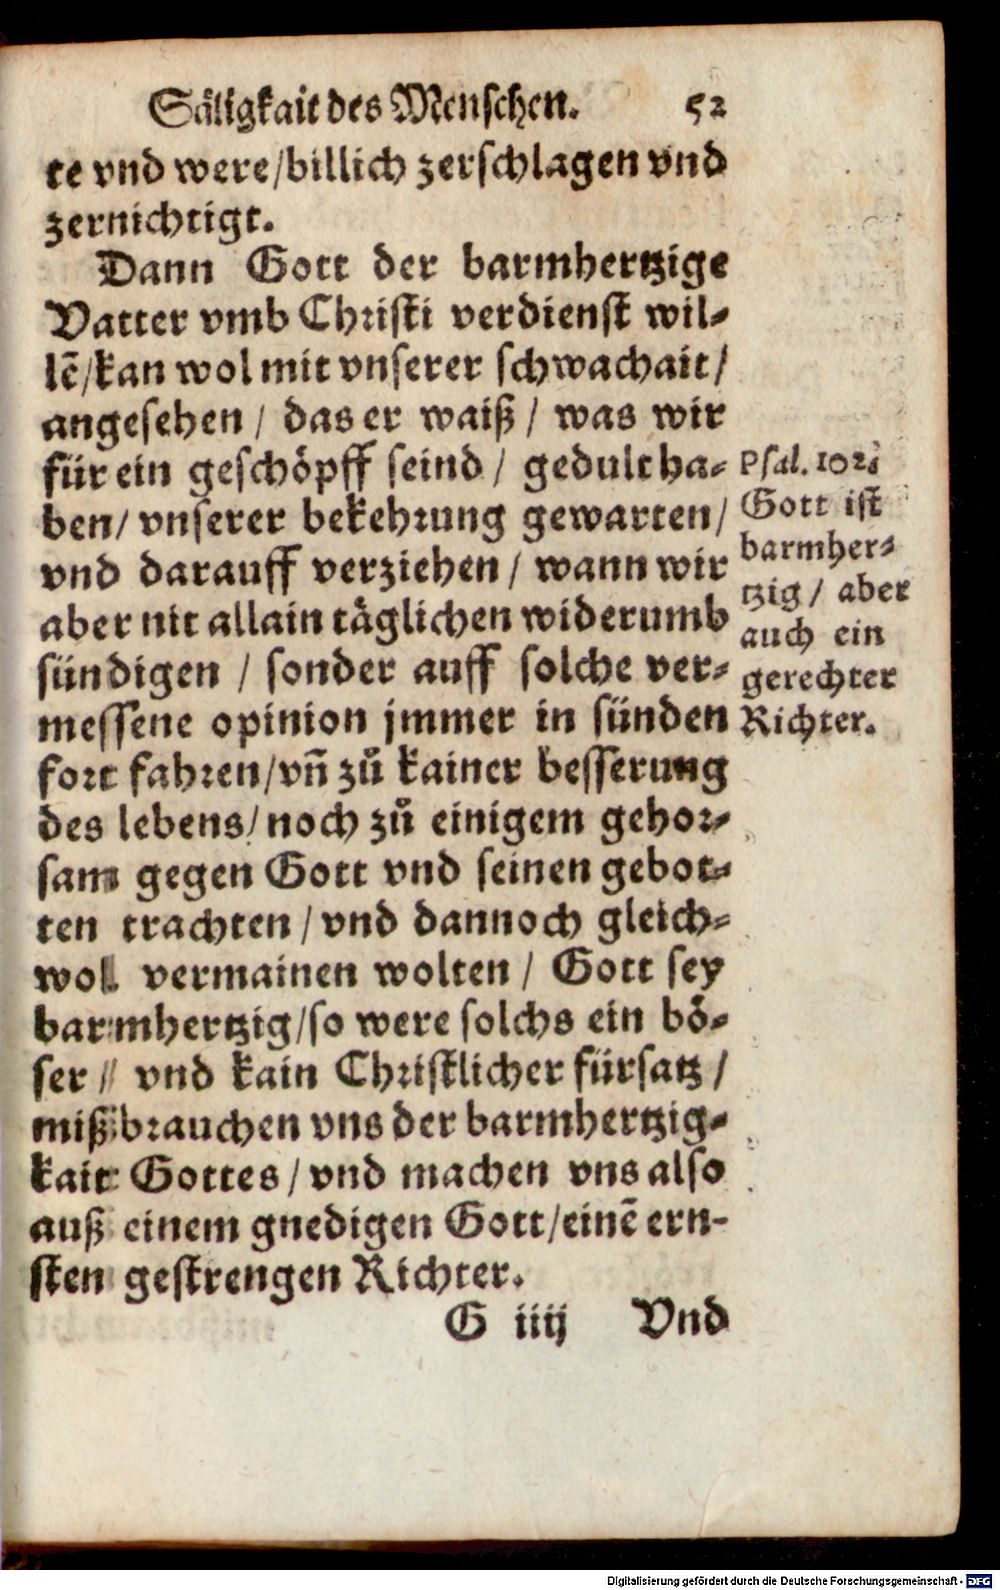 Säligkait des Menschen. 52
te vnd were/billich zerschlagen vnd
zernichtigt.
Dann Gott der barmhertzige
Vatter vmb Christi verdienst wil⸗
lē/kan wol mit vnserer schwachait/
angesehen / das er waiß / was wir
für ein geschöpff seind / gedult ha⸗
ben/ vnserer bekehrung gewarten/
vnd darauff verziehen / wann wir
aber nit allain täglichen widerumb
sündigen / sonder auff solche ver⸗
messene opinion jmmer in sünden
fort fahren/vn̄ zů kainer besserung
des lebens/ noch zů einigem gehor⸗
sam gegen Gott vnd seinen gebot⸗
ten trachten / vnd dannoch gleich⸗
wol vermainen wolten / Gott sey
barmhertzig/so were solchs ein bö⸗
ser / vnd kain Christlicher fürsatz /
mißbrauchen vns der barmhertzig⸗
kait Gottes / vnd machen vns also
auß einem gnedigen Gott/einē ern-
sten gestrengen Richter.
G iiij Vnd
Psal. 102.
Gott ist
barmher⸗
tzig / aber
auch ein
gerechter
Richter.
Digitalisierung gefördert durch die Deutsche Forschungsgemeinschaft - DFG